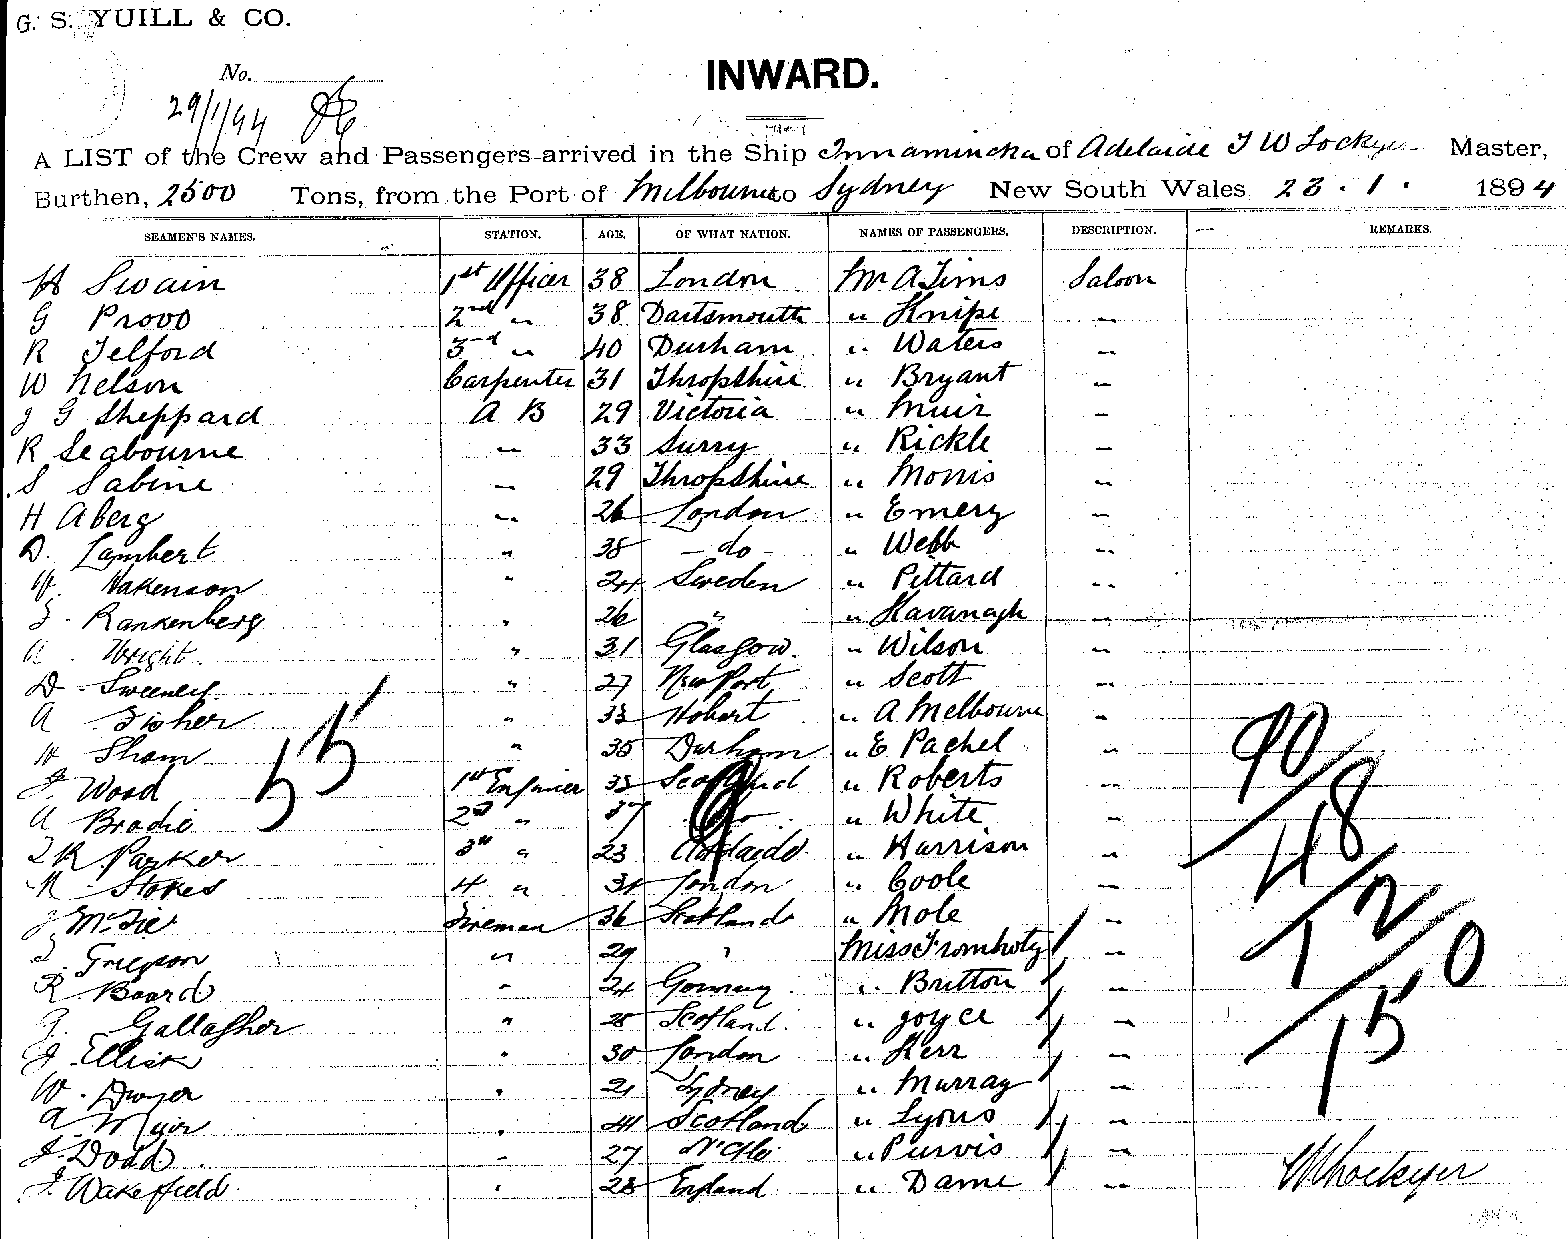 G. S. YUILL & CO.
No.
INWARD.
29/1/94
A LIST of the Crew and Passengers arrived in the Ship Innamincka of Adelaide T W Lockyer Master,
Burthen, 2500 Tons, from the Port of Melbourne to Sydney New South Wales 23 . 1 . 1894
SEAMEN'S NAMES. STATION. AGE. OF WHAT NATION. NAMES OF PASSENGERS. DESCRIPTION. REMARKS.
H Swain 1st Officer 38 London Mr A Tims Saloon
G Provo 2nd " 38 Dartsmouth " Knipe "
R Telford 3rd " 40 Durham " Waters "
W Nelson Carpenter 31 Thropshire " Bryant "
J G Sheppard A B 29 Victoria " Muir "
R Seabourne " 33 Surry " Rickle "
S Sabine " 29 Thropshire " Morris "
H Aberg " 26 London " Emery "
D. Lambert " 38 - do - " Webb "
W. Hakenson " 24 Sweden " Pittard "
F. Rankenberg " 26 " " Kavanagh "
A Wright " 31 Glasgow. " Wilson "
D Sweeney " 27 New Port " Scott "
A Fisher " 33 Hobart " A Melbourne "
W Sham " 35 Durham " E Pachel "
J Wood 1st Enginier 33 Scotland " Roberts "
A Brodie 2d " 37 do " White "
J R Parker 3rd " 23 Adelaide " Harrison "
N Stokes 4 " 31 London " Coole "
J McFie Fireman 36 Scotland " Mole "
J. Friegson " 29 " Miss Fromholtz "
R Board " 24 Germany " Britton "
J. Gallagher " 28 Scotland " Joyce "
J Ellison " 30 London " Kerr "
W. Dwyer " 21 Sydney " Murray "
A. Muir " 41 Scotland " Lyons "
J. Dodd " 27 N'Cle " Purvis "
J. Wakeffield " 28 England " Dame "
55
9
90
48
12
150
W Lockyer